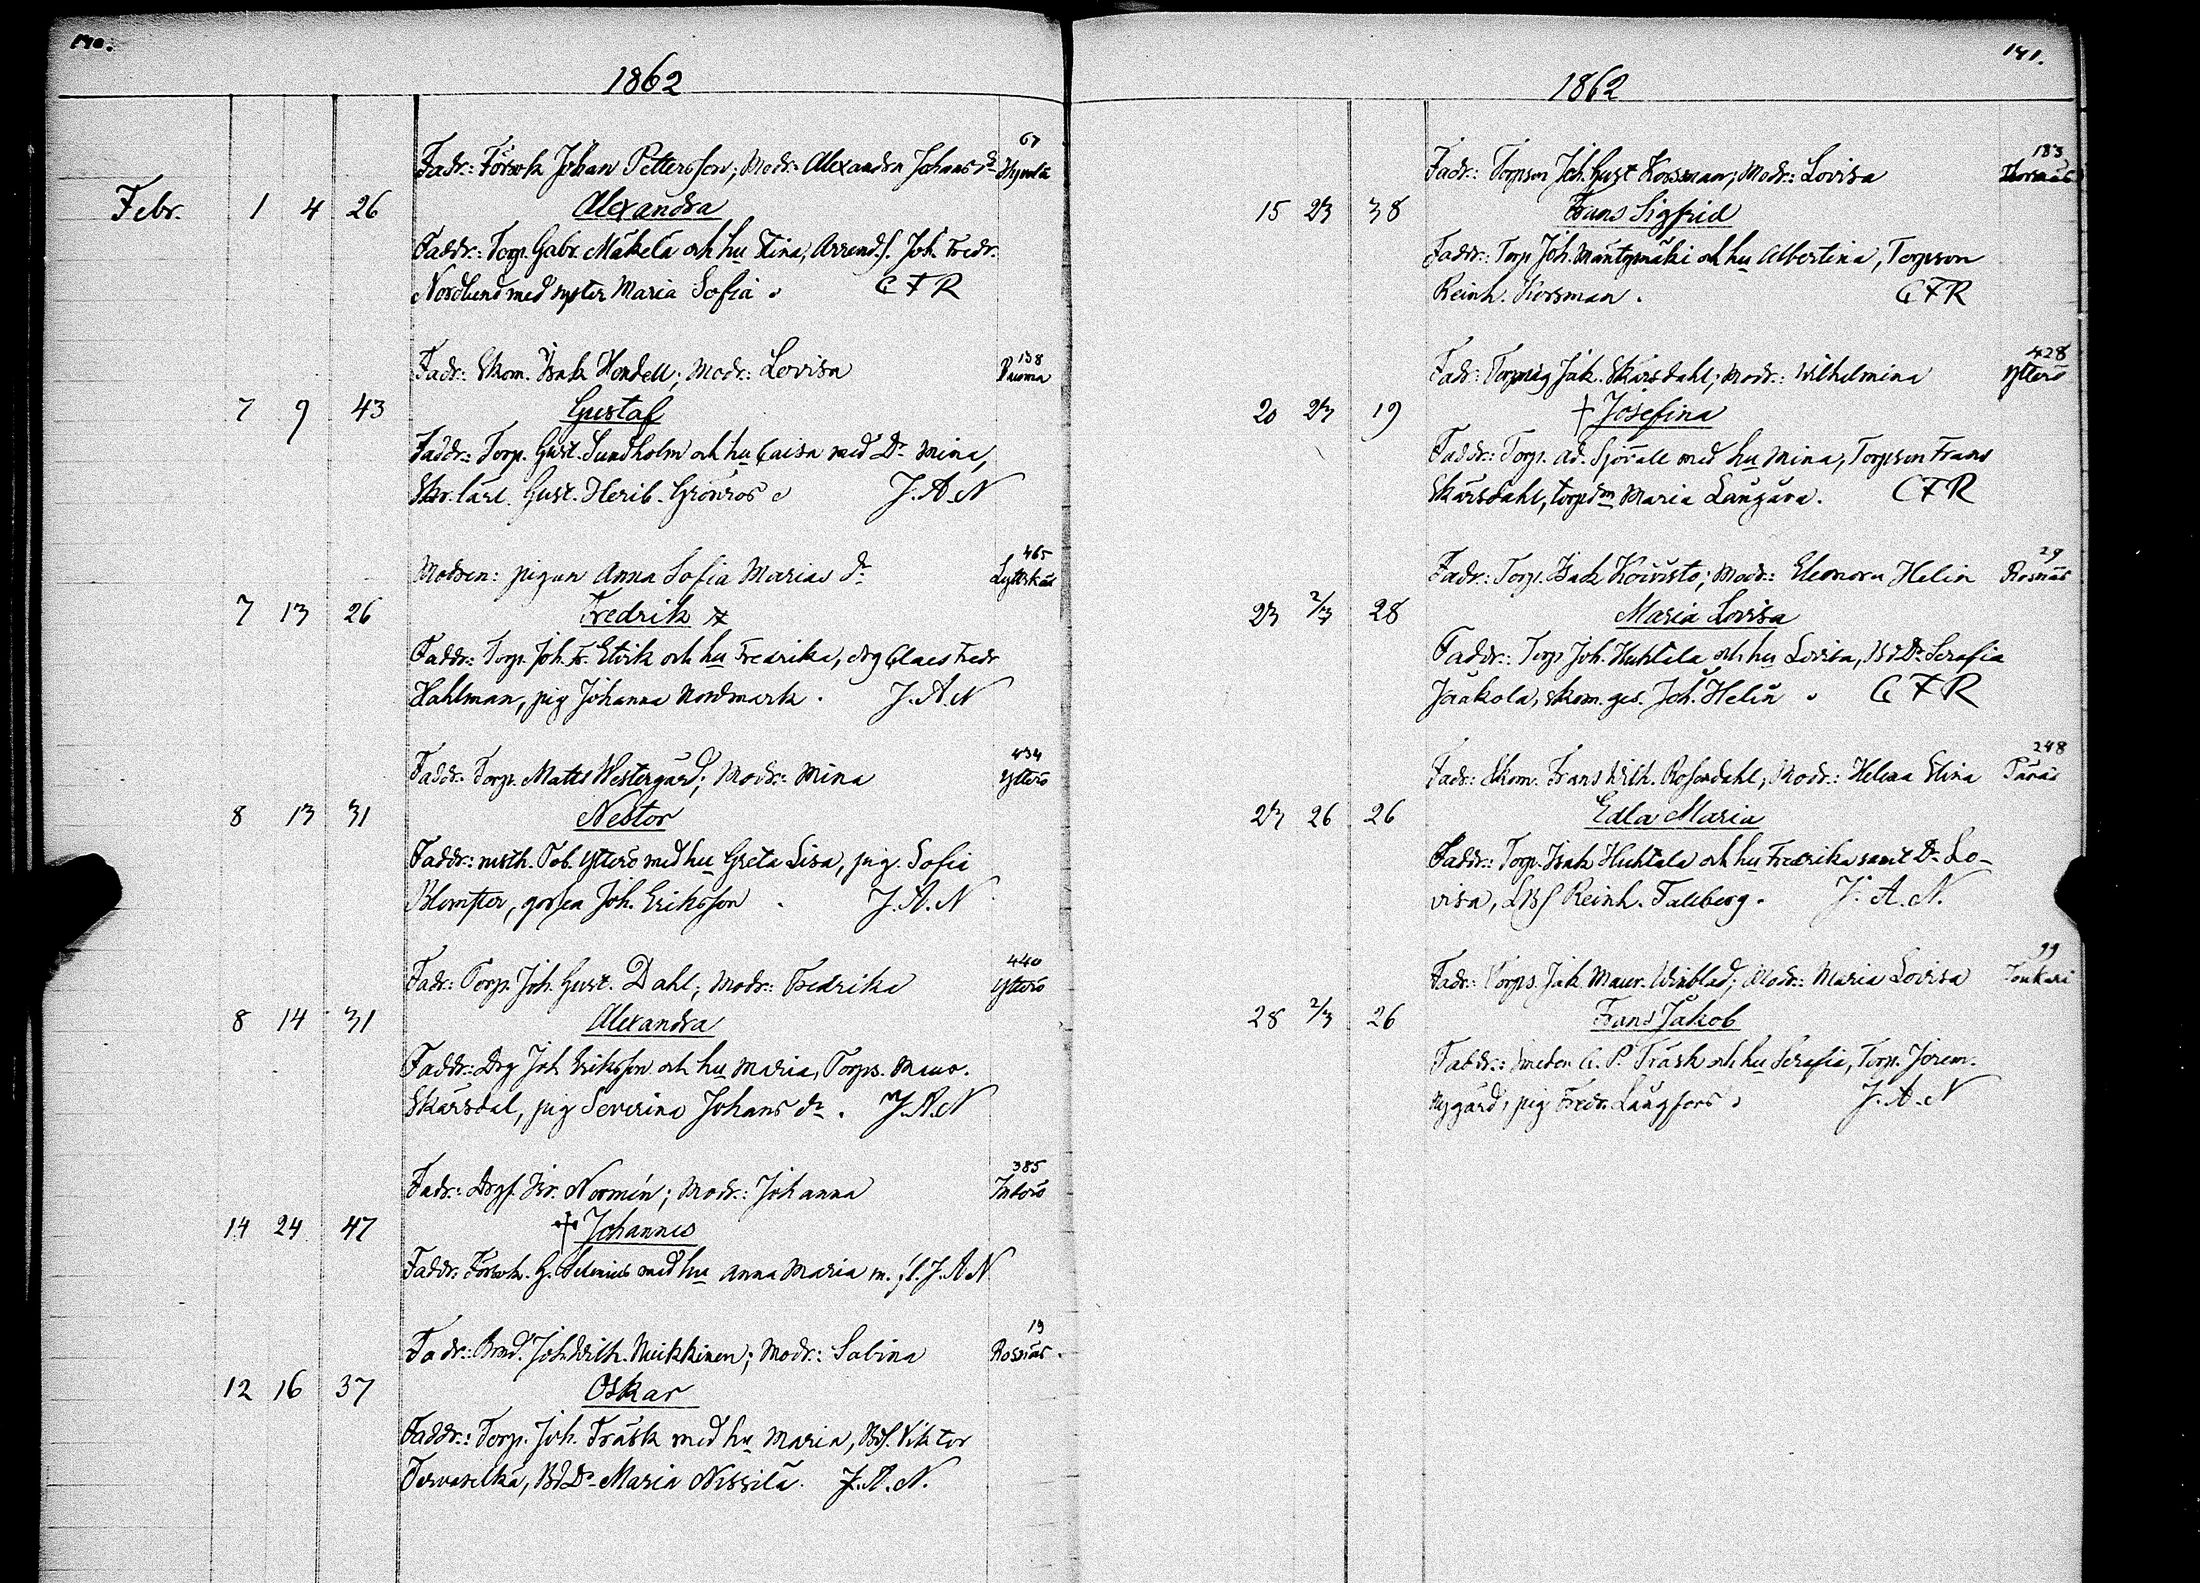 140.
1862
67
Fadr.: Försvk Johan Pettersson; Modr: Alexandra Johans dr
Febr. 1 4 26 Alexandra
Faddr.: Torp. Gabr. Mäkelä och hu Stina, Arrend.s. Joh. Fredr.
Nordlund med syster Maria Sofia. C F R
138
Fadr: Skom. Isak Hendell; Modr: Lovisa Rauma
7 9 43 Gustaf
Faddr.: Torp. Gust. Sundholm och hu Caisa med Dr Mina,
Skr. lärl. Gust. Herib. Grönros J. A. N
465
Modren: pigan Anna Sofia Marias dr
7 13 26 Fredrik
Faddr.: Torp. Joh. Fr. Elvik och hu Fredrika, drg Claes Fredr
Hahlman, pig Johanna Nordmark. J. A. N
434
Faddr. Torp. Matts Westergård; Modr: Mina Ytterö
8 13 31 Nestor
Faddr.: Tob. Ytterö med hu Greta Lisa, pig. Sofia
Blomster, gossen Joh. Eriksson. J. A. N
440
Fadr: Torp. Joh. Gust. Dahl; Modr: Fredrika Ytterö
8 14 31 Alexandra
Faddr.: Drg Joh Eriksson och hu Maria, Torps. Maur.
Skärsdal, pig Severina Johans dr. J. A. N
385
Fadr: Drgs. Isr. Normén; Modr.: Johanna Inderö
14 24 47 † Johannes
Faddr. Försvk. G. Selenius med hu Anna Maria m. fl. J. A. N
19
Fadr: Bond. Joh Wilh. Nuikkinen; Modr: Sabina Rosnäs.
12 16 37 Oskar
Faddr.: Torp. Joh. Träsk med hu Maria, Bds. Viktor
Tervaselkä, Bd Dr Maria Nissilä. J. A. N.
141.
1862
183
Fadr.: Torpson Joh. Gust Korsman; Modr.: Lovisa
15 23 38 Frans Sigfrid
Faddr.: Torp Joh. Mäntymäki och hu Albertina, Torpson
Reinh. Korsman. C F R
428
Fadr: Torpmåg Jak. Skärsdahl; Modr.: Wilhelmina Ytterö
20 23 19 † Josefina
Faddr.: Torp. Ad. Sjövall med hu Mina, Torpson Frans
Skärsdahl, torpdrn Maria Långära. C F R
29
Fadr.: Torp. Isak Koivisto; Modr: Eleonora Helin Rosnäs
23 2/3 28 Maria Lovisa
Faddr.: Torp Joh. Huhtala och hu Lovisa, Bd Dr Serafia
Jaakola, skom. ges. Joh. Helin. C F R
248
Fadr: Skom. Frans Wilh. Rosendahl; Modr.: Helena Stina
23 26 26 Edla Maria
Faddr.: Torp. Isak Huhtala och hu Fredrika samt Dr Lo-
visa, LBs Reinh. Falkberg. J. A. N.
99
Fadr: Torps. Jak Maur. Winblad; Modr.: Maria Lovisa Toukari
28 2/3 26 Frans Jakob
Faddr.: Smeden C. P. Träsk och hu Serafia, Torp. Jerem.
Nygård, pig Fredr. Långfors. J. A. N